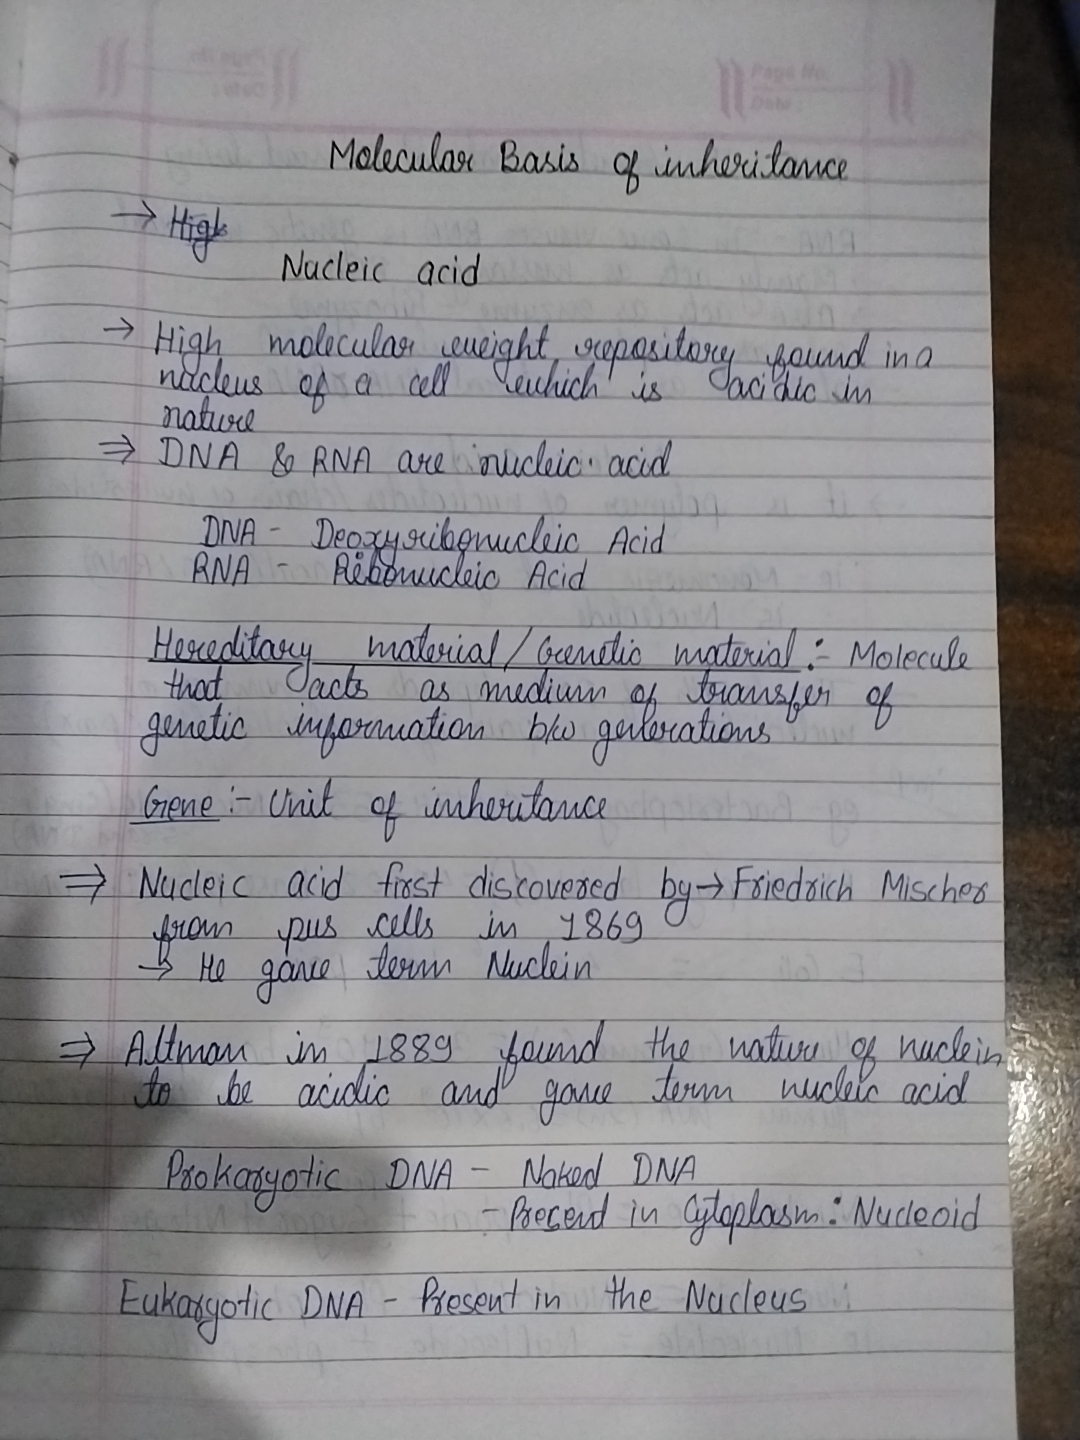 Page No.
Date :
Molecular Basis of inheritance
→ High
Nucleic acid
→ High molecular weight repository found in a
nucleus of a cell which is acidic in
nature
⇒ DNA & RNA are nucleic acid
DNA - Deoxyribonucleic Acid
RNA - Ribonucleic Acid
Hereditary material/Genetic material :- Molecule
that acts as medium of transfer of
genetic information b/w generations
Gene :- Unit of inheritance
⇒ Nucleic acid first discovered by → Friedrich Mischer
from pus cells in 1869
→ He gave term Nuclein
⇒ Altman in 1889 found the nature of nuclein
to be acidic and gave term nucleic acid
Prokaryotic DNA - Naked DNA
- Present in Cytoplasm : Nucleoid
Eukaryotic DNA - Present in the Nucleus